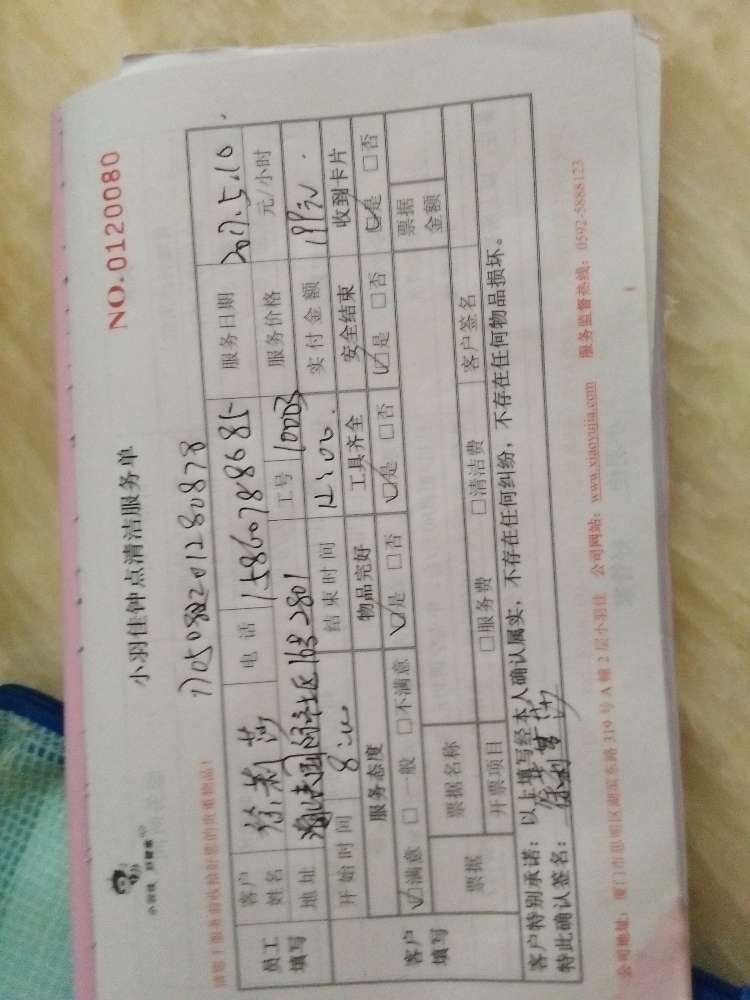 小羽佳 好管家
小羽佳钟点清洁服务单
NO.0120080
请您！服务前收拾好您的贵重物品！
员工填写
客户姓名 徐莉莎 电话 15860788685 服务日期 2017.5.10
地址 社区163 2801 工号 10003 服务价格 元/小时
开始时间 8:00 结束时间 12:00 实付金额
客户填写
服务态度 物品完好 工具齐全 安全结束 收到卡片
☑满意 □一般 □不满意 ☑是 □否 ☑是 □否 ☑是 □否 ☑是 □否
票据 票据名称 票据金额
开票项目 □服务费 □清洁费 客户签名
客户特别承诺：以上填写经本人确认属实，不存在任何纠纷，不存在任何物品损坏。
特此确认签名：徐莉莎
公司地址：厦门市思明区湖滨东路319号A幢2层小羽佳 公司网站：www.xiaoyujia.com 服务监督热线：0592-5888123